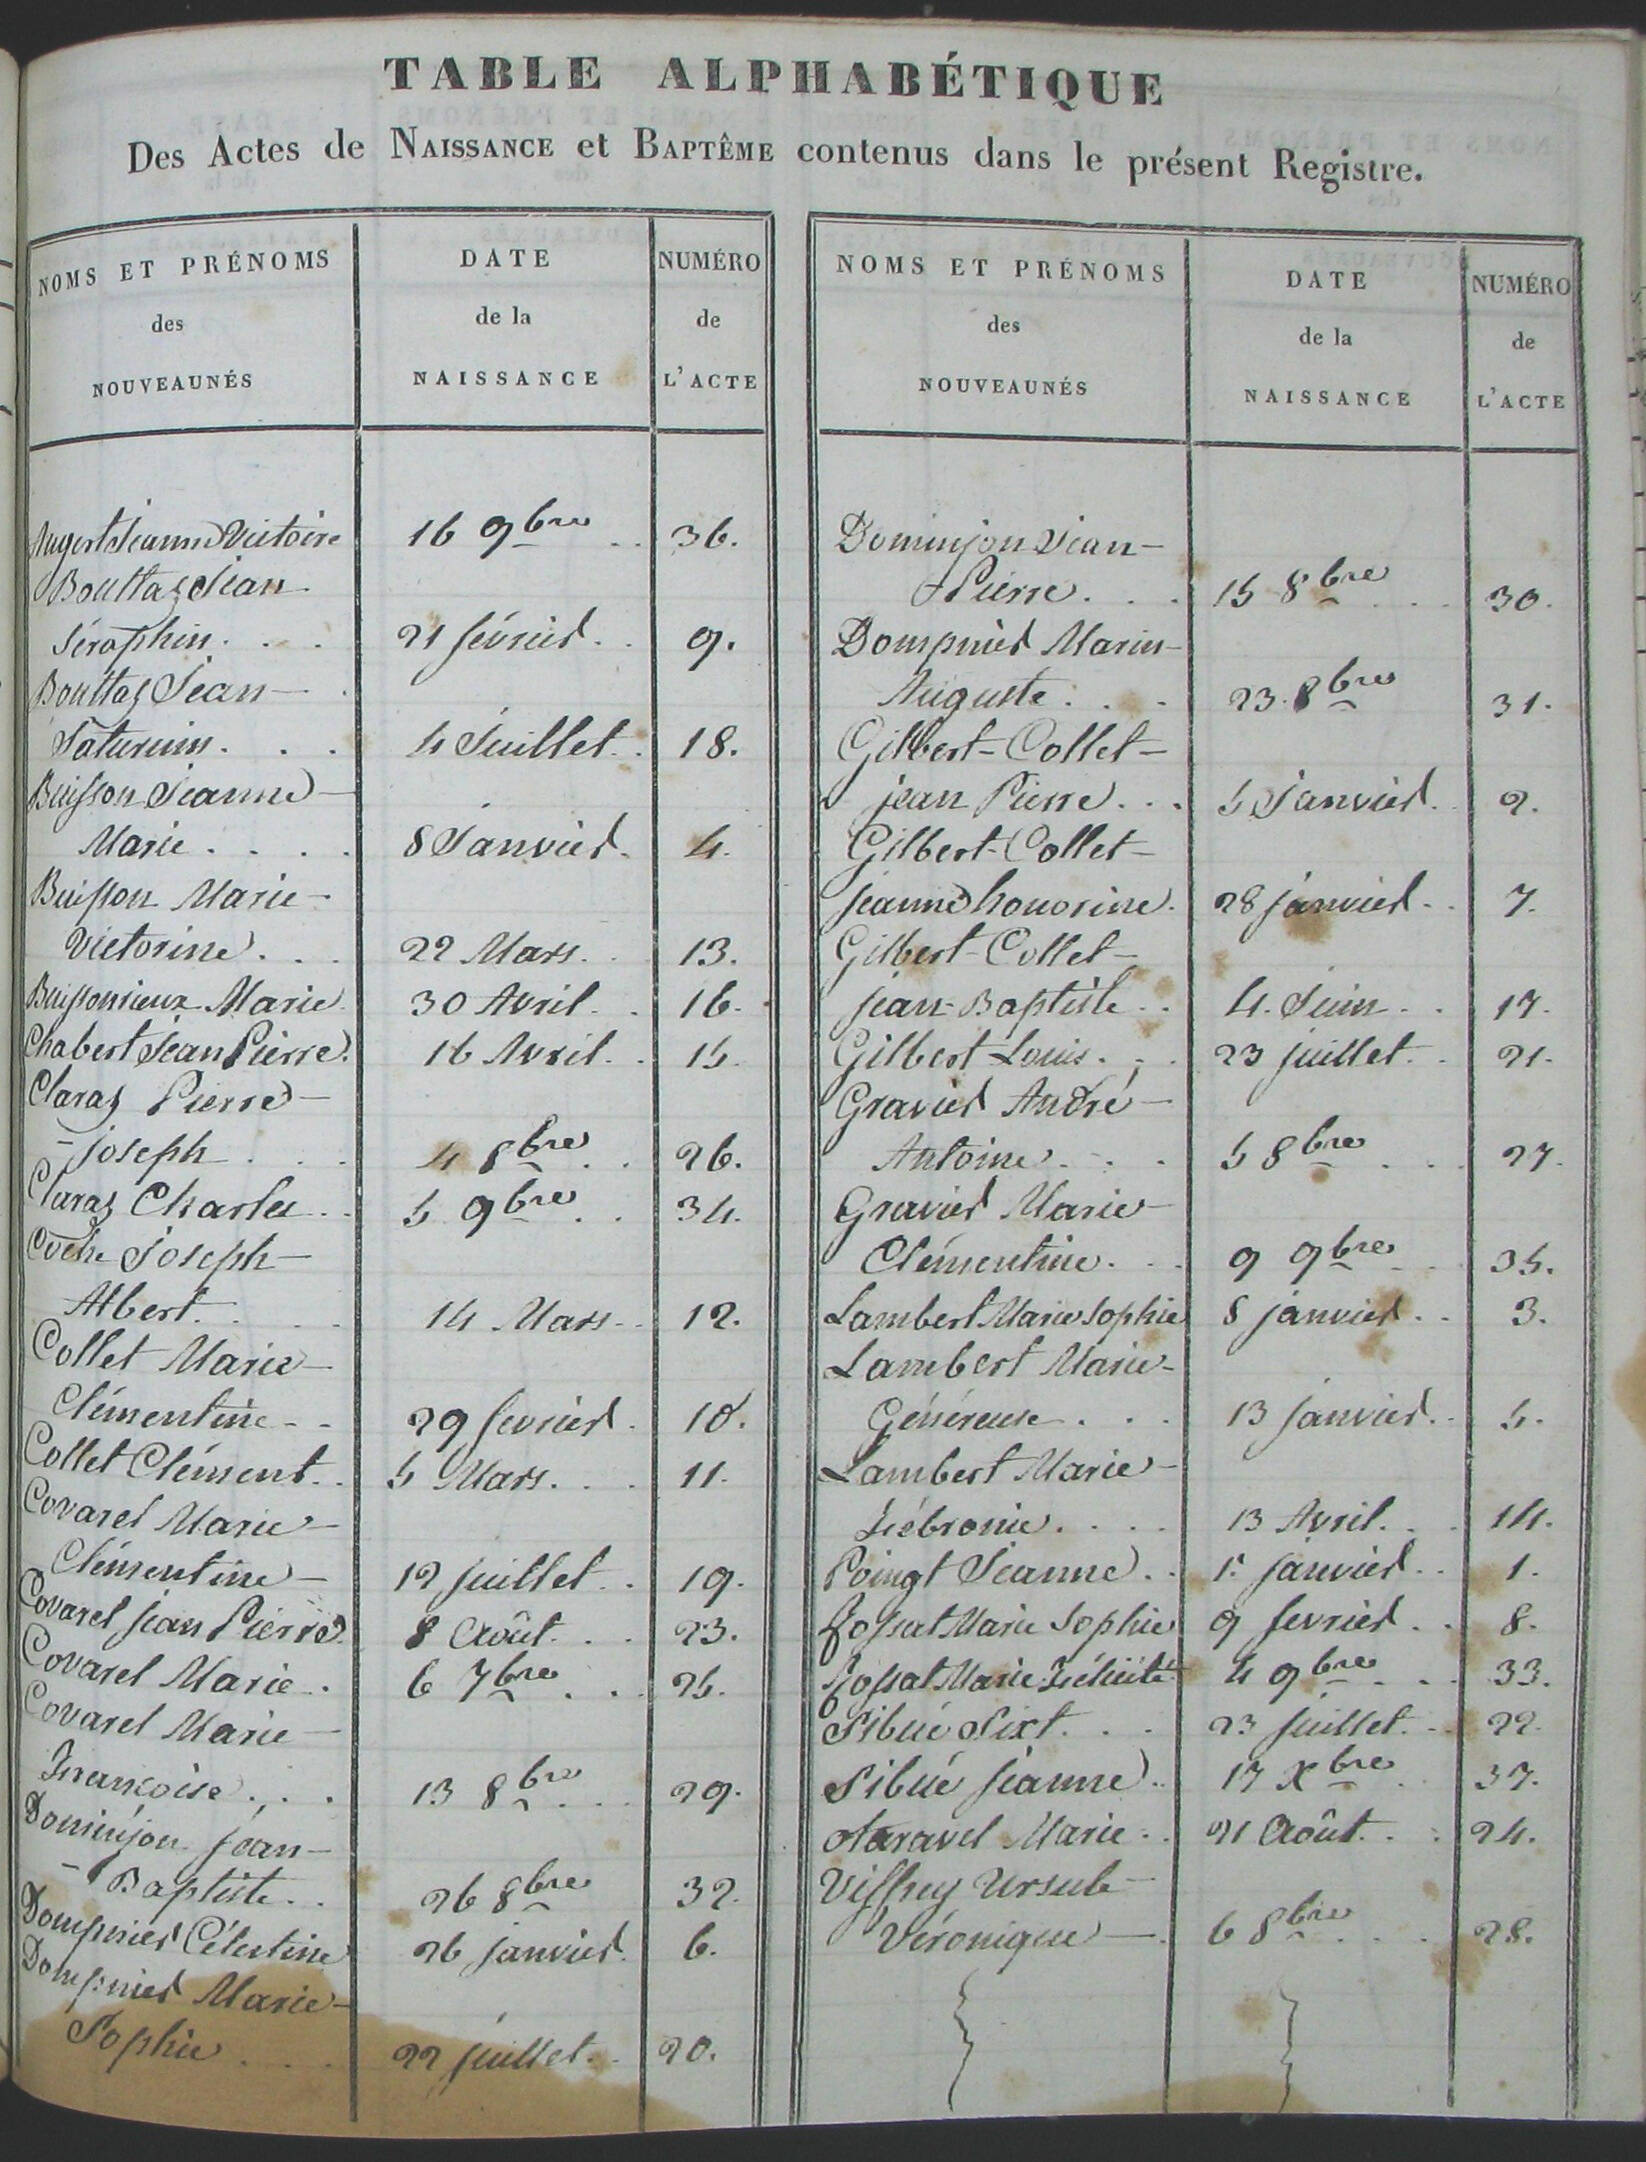 TABLE ALPHABÉTIQUE
Des Actes de NAISSANCE et BAPTÊME contenus dans le présent Registre.
NOMS ET PRÉNOMS des NOUVEAUNÉS
DATE de la NAISSANCE
NUMÉRO de L'ACTE
Augert Jeanne Victoire 16 9bre .. 36.
Bouttaz Jean
Séraphin . . . 21 février . . 9.
Bouttaz Jean —
Saturnin . . . 4 Juillet . . 18.
Buisson Jeanne —
Marie . . . . 8 Janvier . 4.
Buisson Marie —
Victorine . . . 22 Mars . . 13.
Buissonrieux Marie 30 Avril . . 16.
Chabert Jean Pierre . 16 Avril . . 15.
Claraz Pierre —
— joseph . . . 4 8bre . . 26.
Claraz Charles . . 5 9bre . . 34.
Coche Joseph —
Albert . . . . 14 Mars . . 12.
Collet Marie —
Clémentine - - 29 fevrier . 10.
Collet Clément . . 5 Mars . . . 11.
Covarel Marie —
Clémentine — 12 juillet . . 19.
Covarel jean Pierre . 8 Août . . . 23.
Covarel Marie . . 6 7bre . . . 25.
Covarel Marie —
Françoise . . . 13 8bre . . . 29.
Dominjon jean —
— Baptiste . . 26 8bre 32.
Dompnier Célestine 26 janvier . 6.
Dompnier Marie —
Sophie . . . 22 juillet . . 20.
NOMS ET PRÉNOMS des NOUVEAUNÉS
DATE de la NAISSANCE
NUMÉRO de L'ACTE
Dominjon Jean —
Pierre . . . 15 8bre . . . 30.
Dompnier Marin —
Auguste . . . 23 8bre 31.
Gilbert-Collet —
jean Pierre . . . 5 Janvier . 2.
Gilbert-Collet —
jeanne honorine . 28 janvier . . 7.
Gilbert-Collet —
jean-Baptiste . . 4 Juin . . 17.
Gilbert Louis . . . 23 juillet . . 21.
Gravier André —
Antoine . . . 5 8bre . . . 27.
Gravier Marie —
Clémentine . . . 9 9bre . . 35.
Lambert Marie Sophie 8 janvier . . 3.
Lambert Marie -
Généreuse . . . 13 janvier . . 5.
Lambert Marie —
Fébronie . . . . 13 Avril . . . 14.
Poingt Jeanne . . 1er janvier . . 1.
Jossat Marie Sophie 9 fevrier . . 8.
Jossat Marie Félicité 4 9bre . . . 33.
Sibué Sixt . . . 23 juillet . . 22.
Sibué jeanne . . 17 Xbre . 37.
Taravel Marie . . 21 Août . . . 24.
Viffrey Ursule —
Véronique — . 6 8bre . . . 28.